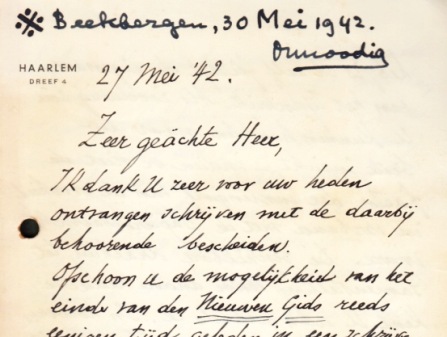 Beekbergen, 30 Mei 1942.
Onnoodig
HAARLEM
DREEF 4
27 Mei '42.
Zeer geachte Heer,
Ik dank U zeer voor uw heden
ontvangen schrijven met de daarbij
behoorende bescheiden.
Ofschoon u de mogelijkheid van het
einde van den Nieuwen Gids reeds
eenigen tijd geleden in een